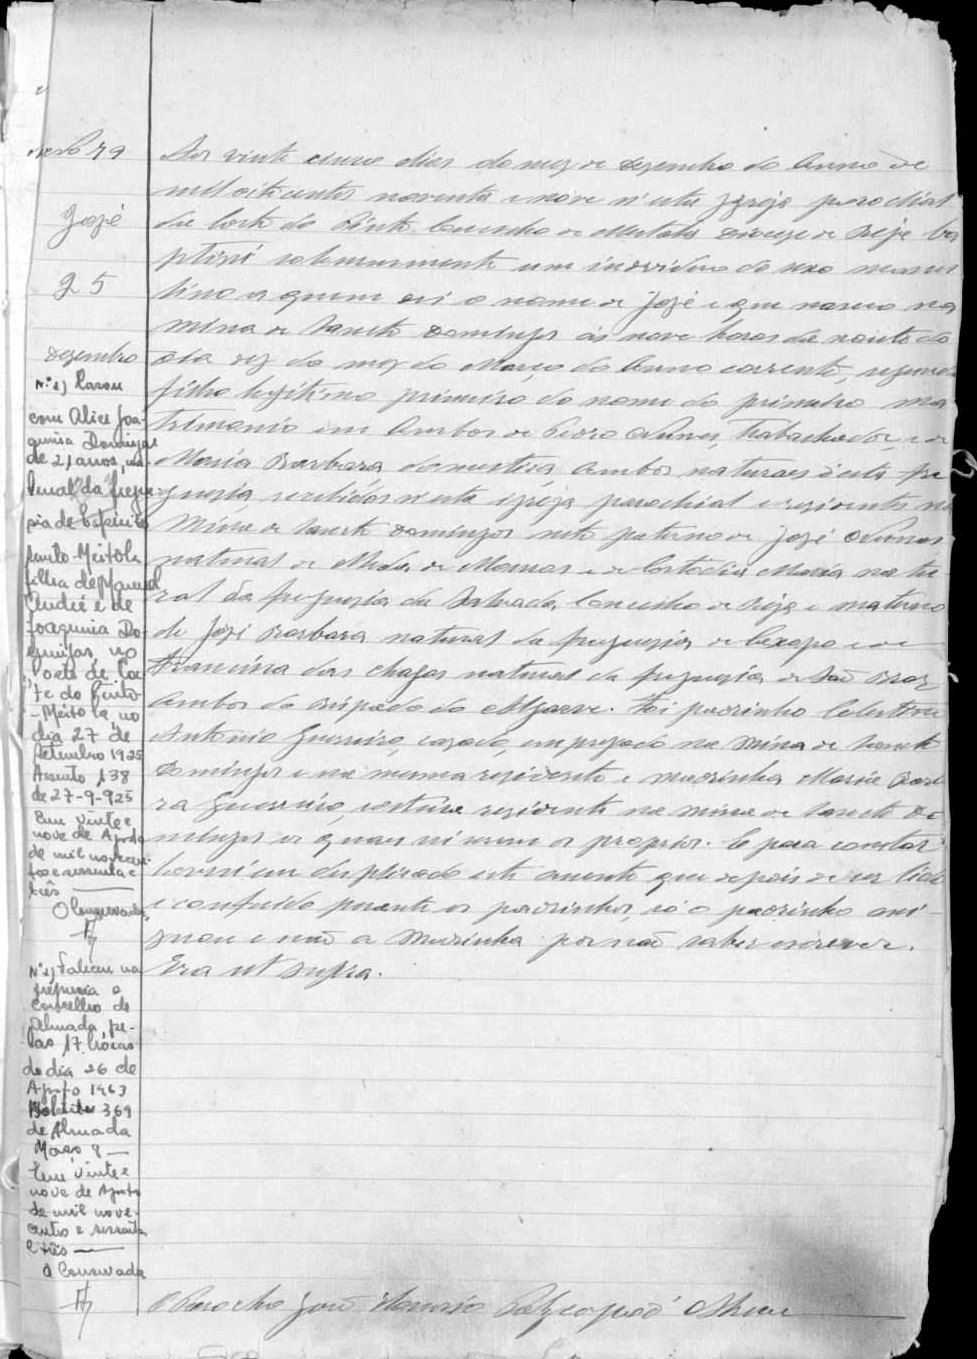 No 79
José
25
dezembro
Nº 1) Casou
com Alice Joa-
quina Domingas
de 21 anos, na-
tural da fregue-
sia de Espírito
Santo-Mértola
filha de Manuel
André e de
Joaquina Do-
mingas, no
Posto de Cor-
te do Pinto-
-Mértola, no
dia 27 de
Setembro 1925
Assento 138
de 27-9-925
Em vinte e
nove de Agosto
de mil novecen-
tos e sessenta e
três
O Conservador,
Nº 2) Faleceu na
freguesia e
Concelho de
Almada, pe-
las 17 horas
do dia 26 de
Agosto 1963
Boletim 369
de Almada
Maço 8
Em vinte e
nove de Agosto
de mil nove-
centos e sessenta
e três
O Conservador
Aos vinte cinco dias do mez de dezembro do anno de
mil oitocentos noventa e nove n'esta Igreja parochial
da Corte do Pinto Concelho de Mertola Diocese de Beja ba
ptisei solemnemente um individuo do sexo mascu
lino a quem dei o nome de José e que nasceu na
Mina de Sancto Domingos ás nove horas da noite do
dia dez do mez de Março do anno corrente, segundo
filho legitimo primeiro do nome do primeiro ma
trimonio em ambos de Pedro Nunes, trabalhador, e de
Maria Barbara, domestica, ambos naturaes d'esta fre
guesia, recebidos n'esta igreja parochial e residentes na
Mina de Sancto Domingos neto paterno de José Nunes
natural de de Mouros e de Custodia Maria natu
ral da freguesia da Salvada, Concelho de Beja e materno
de José Barbara natural da freguesia de Cachopo e de
Francisca das Chagas natural da freguesia de São Braz
ambos do Bispado do Algarve. Foi padrinho Celestino
Antonio Guerreiro, casado, empregado na Mina de Sancto
Domingos e na mesma residente e madrinha Maria Barba
ra Guerreiro, residente na mina de Sancto Do
mingos os quaes sei serem os proprios. E para constar
lavrei em duplicado este assento que depois de ser lido
e conferido perante os padrinhos, só o padrinho assi-
gnou e não a Madrinha por não saber escrever.
Era ut supra.
O Parocho José